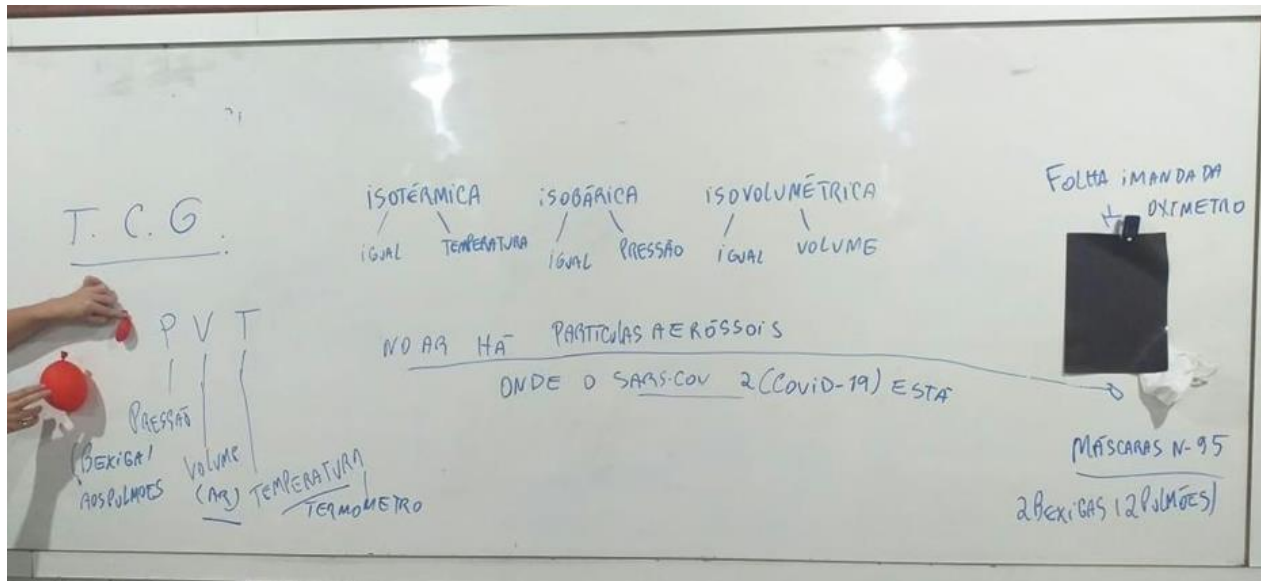 T. C. G.
P V T
PRESSÃO
(BEXIGA/
AOS PULMOES
VOLUME
(AR)
TEMPERATURA
TERMOMETRO
ISOTÉRMICA
IGUAL TEMPERATURA
ISOBÁRICA
IGUAL PRESSÃO
ISOVOLUMÉTRICA
IGUAL VOLUME
NO AR HÁ PARTICULAS AERÓSSOIS
ONDE O SARS-COV 2 (COVID-19) ESTÁ
FOLHA IMANDADA
OXIMETRO
MÁSCARAS N-95
2 BEXIGAS (2 PULMÕES)